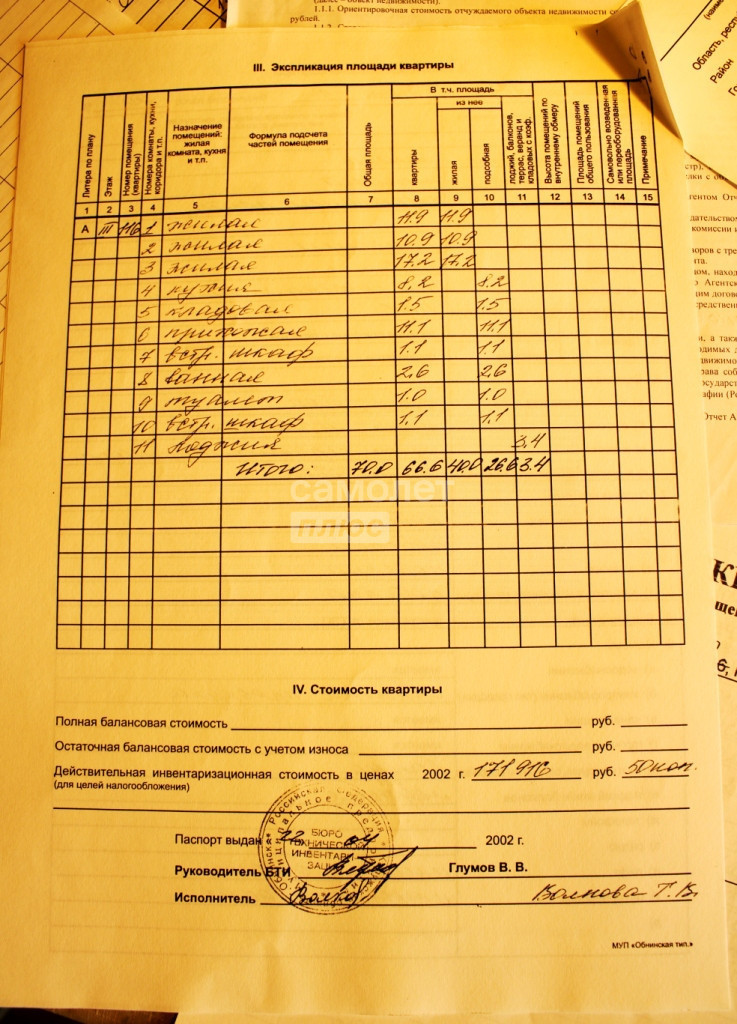 1.1.1. Ориентировочная стоимость отчуждаемого объекта недвижимости со
рублей.
Область, респ
Район
III. Экспликация площади квартиры
Литера по плану
Этаж
Номер помещения (квартиры)
Номера комнаты, кухни, коридора и т.п.
Назначение помещений: жилая комната, кухня и т.п.
Формула подсчета частей помещения
Общая площадь
В т.ч. площадь
квартиры
из нее
жилая
подсобная
лоджий, балконов, террас, веранд и кладовых с коэф.
Высота помещений по внутреннему обмеру
Площадь помещений общего пользования
Самовольно возведенная или переоборудованная площадь
Примечание
1 2 3 4 5 6 7 8 9 10 11 12 13 14 15
А III 116 1 жилая 11.9 11.9
2 жилая 10.9 10.9
3 жилая 17.2 17.2
4 кухня 8.2 8.2
5 кладовая 1.5 1.5
6 прихожая 11.1 11.1
7 встр. шкаф 1.1 1.1
8 ванная 2.6 2.6
9 туалет 1.0 1.0
10 встр. шкаф 1.1 1.1
11 лоджия 3.4
Итого: 70.0 66.6 40.0 26.6 3.4
самолет
плюс
IV. Стоимость квартиры
Полная балансовая стоимость руб.
Остаточная балансовая стоимость с учетом износа руб.
Действительная инвентаризационная стоимость в ценах 2002 г. 171916 руб. 50 коп.
(для целей налогообложения)
Паспорт выдан 22 04 2002 г.
Руководитель БТИ Глумов В. В.
Исполнитель Волкова Т.В.
БЮРО
ТЕХНИЧЕСКОЙ
ИНВЕНТАРИ
ЗАЦИИ
МУП «Обнинская тип.»